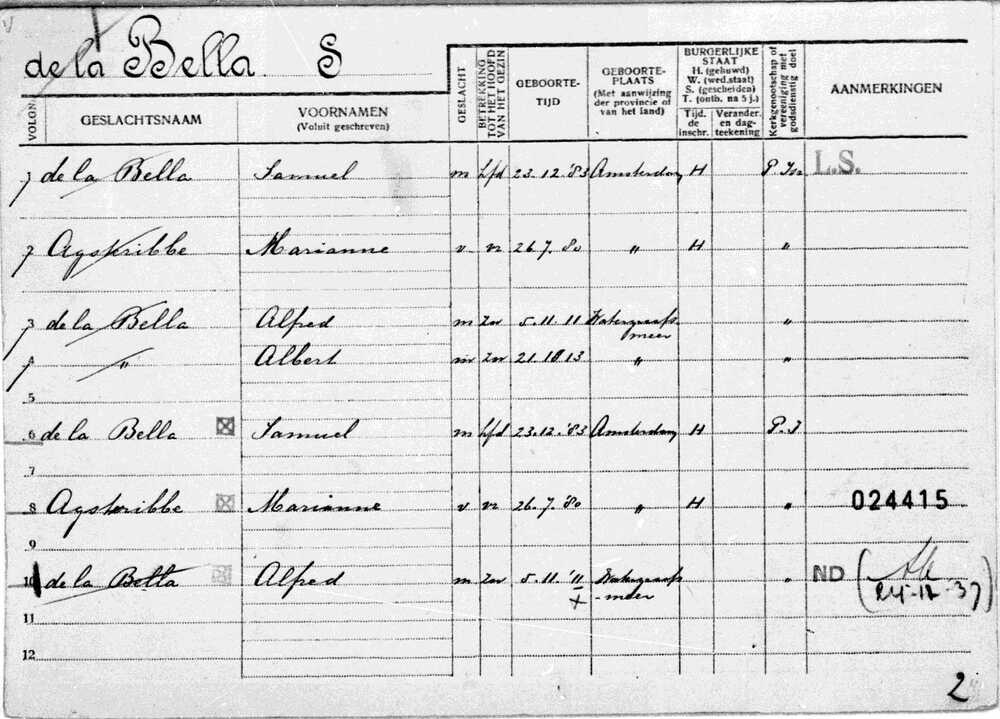 de la Bella S
VOLGN.
GESLACHTSNAAM
VOORNAMEN
(Voluit geschreven)
GESLACHT
BETREKKING TOT HET HOOFD VAN HET GEZIN
GEBOORTE-
TIJD
GEBOORTE-
PLAATS
(Met aanwijzing
der provincie of
van het land)
BURGERLIJKE
STAAT
H. (gehuwd)
W. (wed.staat)
S. (gescheiden)
T. (ontb. na 5 j.)
Tijd.
de
inschr.
Verander.
en dag-
teekening
Kerkgenootschap of vereeniging met godsdienstig doel
AANMERKINGEN
1 de la Bella Samuel m hfd 23.12.'83 Amsterdam H P. Isr L.S.
2 Agskribbe Marianne v vr 26.7.80 " H "
3 de la Bella Alfred m zn 5.11.11 Watergraafs
meer "
4 " Albert m zn 21.10.13 " "
5
6 de la Bella Samuel m hfd 23.12.'83 Amsterdam H P. I
7
8 Agskribbe Marianne v vr 26.7.'80 " H " 024415
9
10 de la Bella Alfred m zn 5.11.'11 Watergraafs
-meer " ND
24-12-37
11
12
2